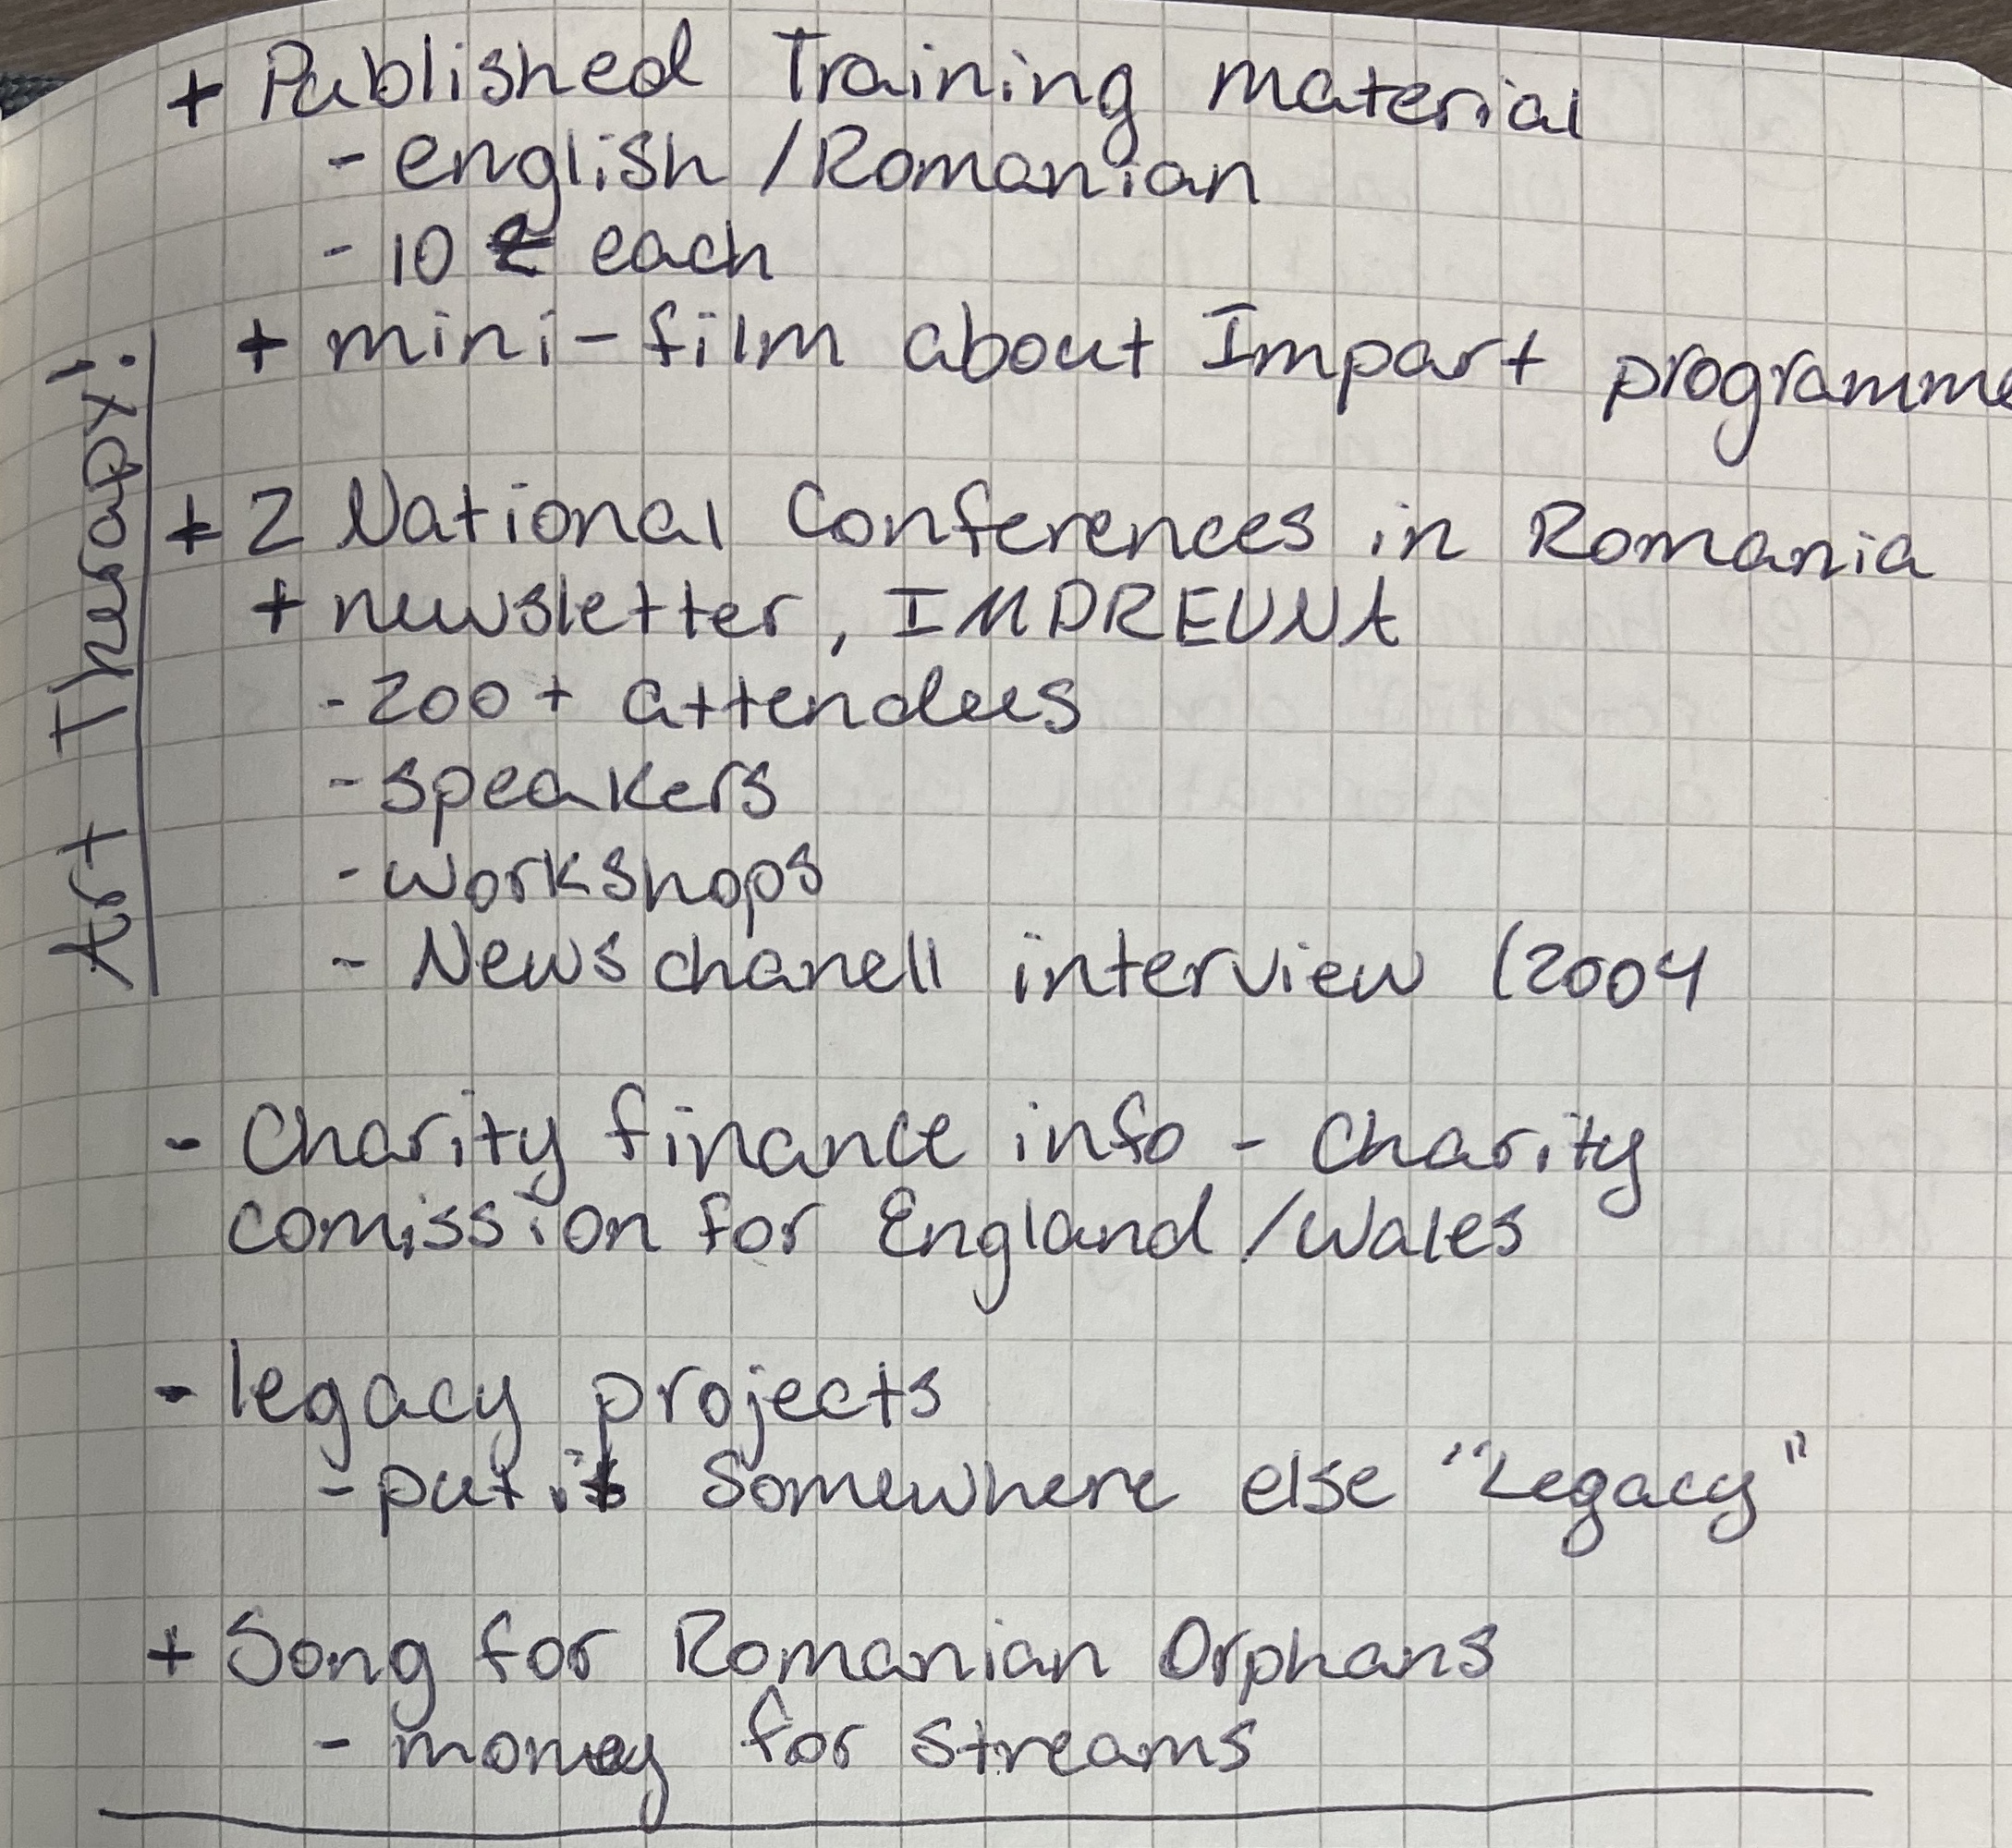 + Published Training material
- english / Romanian
- 10 £ each
+ mini-film about Impart programme
Art Therapy!
+ 2 National Conferences in Romania
+ newsletter, IMPREUNA
- 200+ attendees
- speakers
- workshops
- News chanell interview (2004
- Charity finance info - Charity
comission for England / Wales
- legacy projects
- put it somewhere else "Legacy"
+ Song for Romanian Orphans
- money for streams